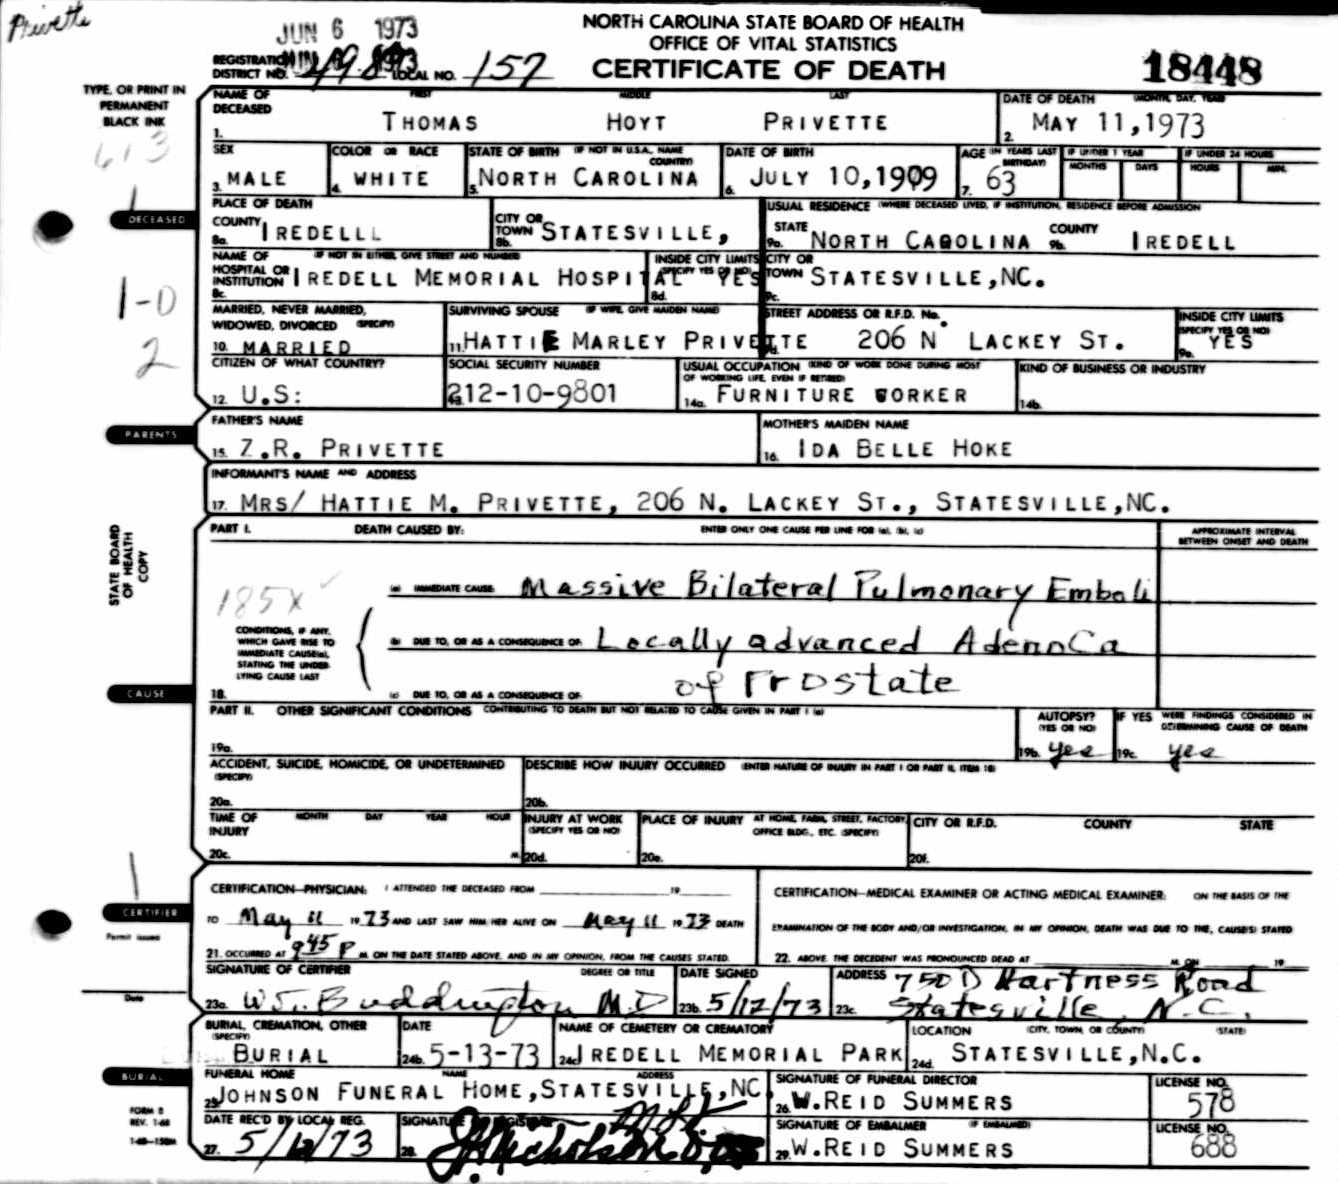 Privette
JUN 6 1973
NORTH CAROLINA STATE BOARD OF HEALTH
OFFICE OF VITAL STATISTICS
CERTIFICATE OF DEATH
18448
REGISTRATION DISTRICT NO. 498 LOCAL NO. 157
TYPE, OR PRINT IN
PERMANENT
BLACK INK
613
NAME OF DECEASED FIRST MIDDLE LAST
1. THOMAS HOYT PRIVETTE
DATE OF DEATH (MONTH, DAY, YEAR)
2. MAY 11,1973
SEX
3. MALE
COLOR OR RACE
4. WHITE
STATE OF BIRTH (IF NOT IN U.S.A., NAME COUNTRY)
5. NORTH CAROLINA
DATE OF BIRTH
6. JULY 10,1909
AGE (IN YEARS LAST BIRTHDAY)
7. 63
IF UNDER 1 YEAR
MONTHS DAYS
IF UNDER 24 HOURS
HOURS MIN.
DECEASED
PLACE OF DEATH
COUNTY
8a. IREDELLL
CITY OR TOWN
8b. STATESVILLE,
USUAL RESIDENCE (WHERE DECEASED LIVED, IF INSTITUTION, RESIDENCE BEFORE ADMISSION
STATE
9a. NORTH CAOOLINA
COUNTY
9b. IREDELL
NAME OF HOSPITAL OR INSTITUTION (IF NOT IN EITHER, GIVE STREET AND NUMBER)
8c. IREDELL MEMORIAL HOSPITAL
INSIDE CITY LIMITS (SPECIFY YES OR NO)
8d. YES
CITY OR TOWN
9c. STATESVILLE,NC.
1-0
2
MARRIED, NEVER MARRIED,
WIDOWED, DIVORCED (SPECIFY)
10. MARRIED
SURVIVING SPOUSE (IF WIFE, GIVE MAIDEN NAME)
11. HATTIE MARLEY PRIVETTE
STREET ADDRESS OR R.F.D. No.
9d. 206 N LACKEY ST.
INSIDE CITY LIMITS
(SPECIFY YES OR NO)
9e. YES
CITIZEN OF WHAT COUNTRY?
12. U.S:
SOCIAL SECURITY NUMBER
212-10-9801
USUAL OCCUPATION (KIND OF WORK DONE DURING MOST OF WORKING LIFE, EVEN IF RETIRED)
14a. FURNITURE WORKER
KIND OF BUSINESS OR INDUSTRY
14b.
PARENTS
FATHER'S NAME
15. Z.R. PRIVETTE
MOTHER'S MAIDEN NAME
16. IDA BELLE HOKE
INFORMANT'S NAME AND ADDRESS
17. MRS/ HATTIE M. PRIVETTE, 206 N. LACKEY ST., STATESVILLE,NC.
STATE BOARD
OF HEALTH
COPY
PART I. DEATH CAUSED BY: ENTER ONLY ONE CAUSE PER LINE FOR (a), (b), (c)
APPROXIMATE INTERVAL
BETWEEN ONSET AND DEATH
185X
(a) IMMEDIATE CAUSE Massive Bilateral Pulmonary Emboli
CONDITIONS, IF ANY,
WHICH GAVE RISE TO
IMMEDIATE CAUSE(a),
STATING THE UNDER-
LYING CAUSE LAST
(b) DUE TO, OR AS A CONSEQUENCE OF Locally advanced AdenoCa
of Prostate
CAUSE
18. (c) DUE TO, OR AS A CONSEQUENCE OF
PART II. OTHER SIGNIFICANT CONDITIONS CONTRIBUTING TO DEATH BUT NOT RELATED TO CAUSE GIVEN IN PART I (a)
19a.
AUTOPSY?
(YES OR NO)
19b. yes
IF YES WERE FINDINGS CONSIDERED IN DETERMINING CAUSE OF DEATH
19c. yes
ACCIDENT, SUICIDE, HOMICIDE, OR UNDETERMINED
(SPECIFY)
20a.
DESCRIBE HOW INJURY OCCURRED (ENTER NATURE OF INJURY IN PART I OR PART II, ITEM 18)
20b.
TIME OF INJURY MONTH DAY YEAR HOUR
20c. M.
INJURY AT WORK
(SPECIFY YES OR NO)
20d.
PLACE OF INJURY AT HOME, FARM, STREET, FACTORY, OFFICE BLDG., ETC. (SPECIFY)
20e.
CITY OR R.F.D. COUNTY STATE
20f.
1
CERTIFIER
Permit issued
Date
CERTIFICATION—PHYSICIAN: I ATTENDED THE DECEASED FROM 19
TO May 11 1973 AND LAST SAW HIM/HER ALIVE ON May 11 1973 DEATH
21. OCCURRED AT 9:45 P M. ON THE DATE STATED ABOVE, AND IN MY OPINION, FROM THE CAUSES STATED.
CERTIFICATION—MEDICAL EXAMINER OR ACTING MEDICAL EXAMINER: ON THE BASIS OF THE
EXAMINATION OF THE BODY AND/OR INVESTIGATION, IN MY OPINION, DEATH WAS DUE TO THE, CAUSE(S) STATED
22. ABOVE. THE DECEDENT WAS PRONOUNCED DEAD AT M. ON 19
SIGNATURE OF CERTIFIER DEGREE OR TITLE
23a. M.D
DATE SIGNED
23b. 5/12/73
ADDRESS 750 D Hartness Road
23c. Statesville, N.C.
BURIAL, CREMATION, OTHER
(SPECIFY)
BURIAL
DATE
24b. 5-13-73
NAME OF CEMETERY OR CREMATORY
24c. IREDELL MEMORIAL PARK
LOCATION (CITY, TOWN, OR COUNTY) (STATE)
24d. STATESVILLE,N.C.
BURIAL
FUNERAL HOME NAME ADDRESS
25. JOHNSON FUNERAL HOME,STATESVILLE,NC.
SIGNATURE OF FUNERAL DIRECTOR
26. W.REID SUMMERS
LICENSE NO.
578
FORM 8
REV. 1-68
1-68—150M
DATE REC'D BY LOCAL REG.
27. 5/12/73
SIGNATURE OF REGISTRAR
28.
SIGNATURE OF EMBALMER (IF EMBALMED)
29. W.REID SUMMERS
LICENSE NO.
688